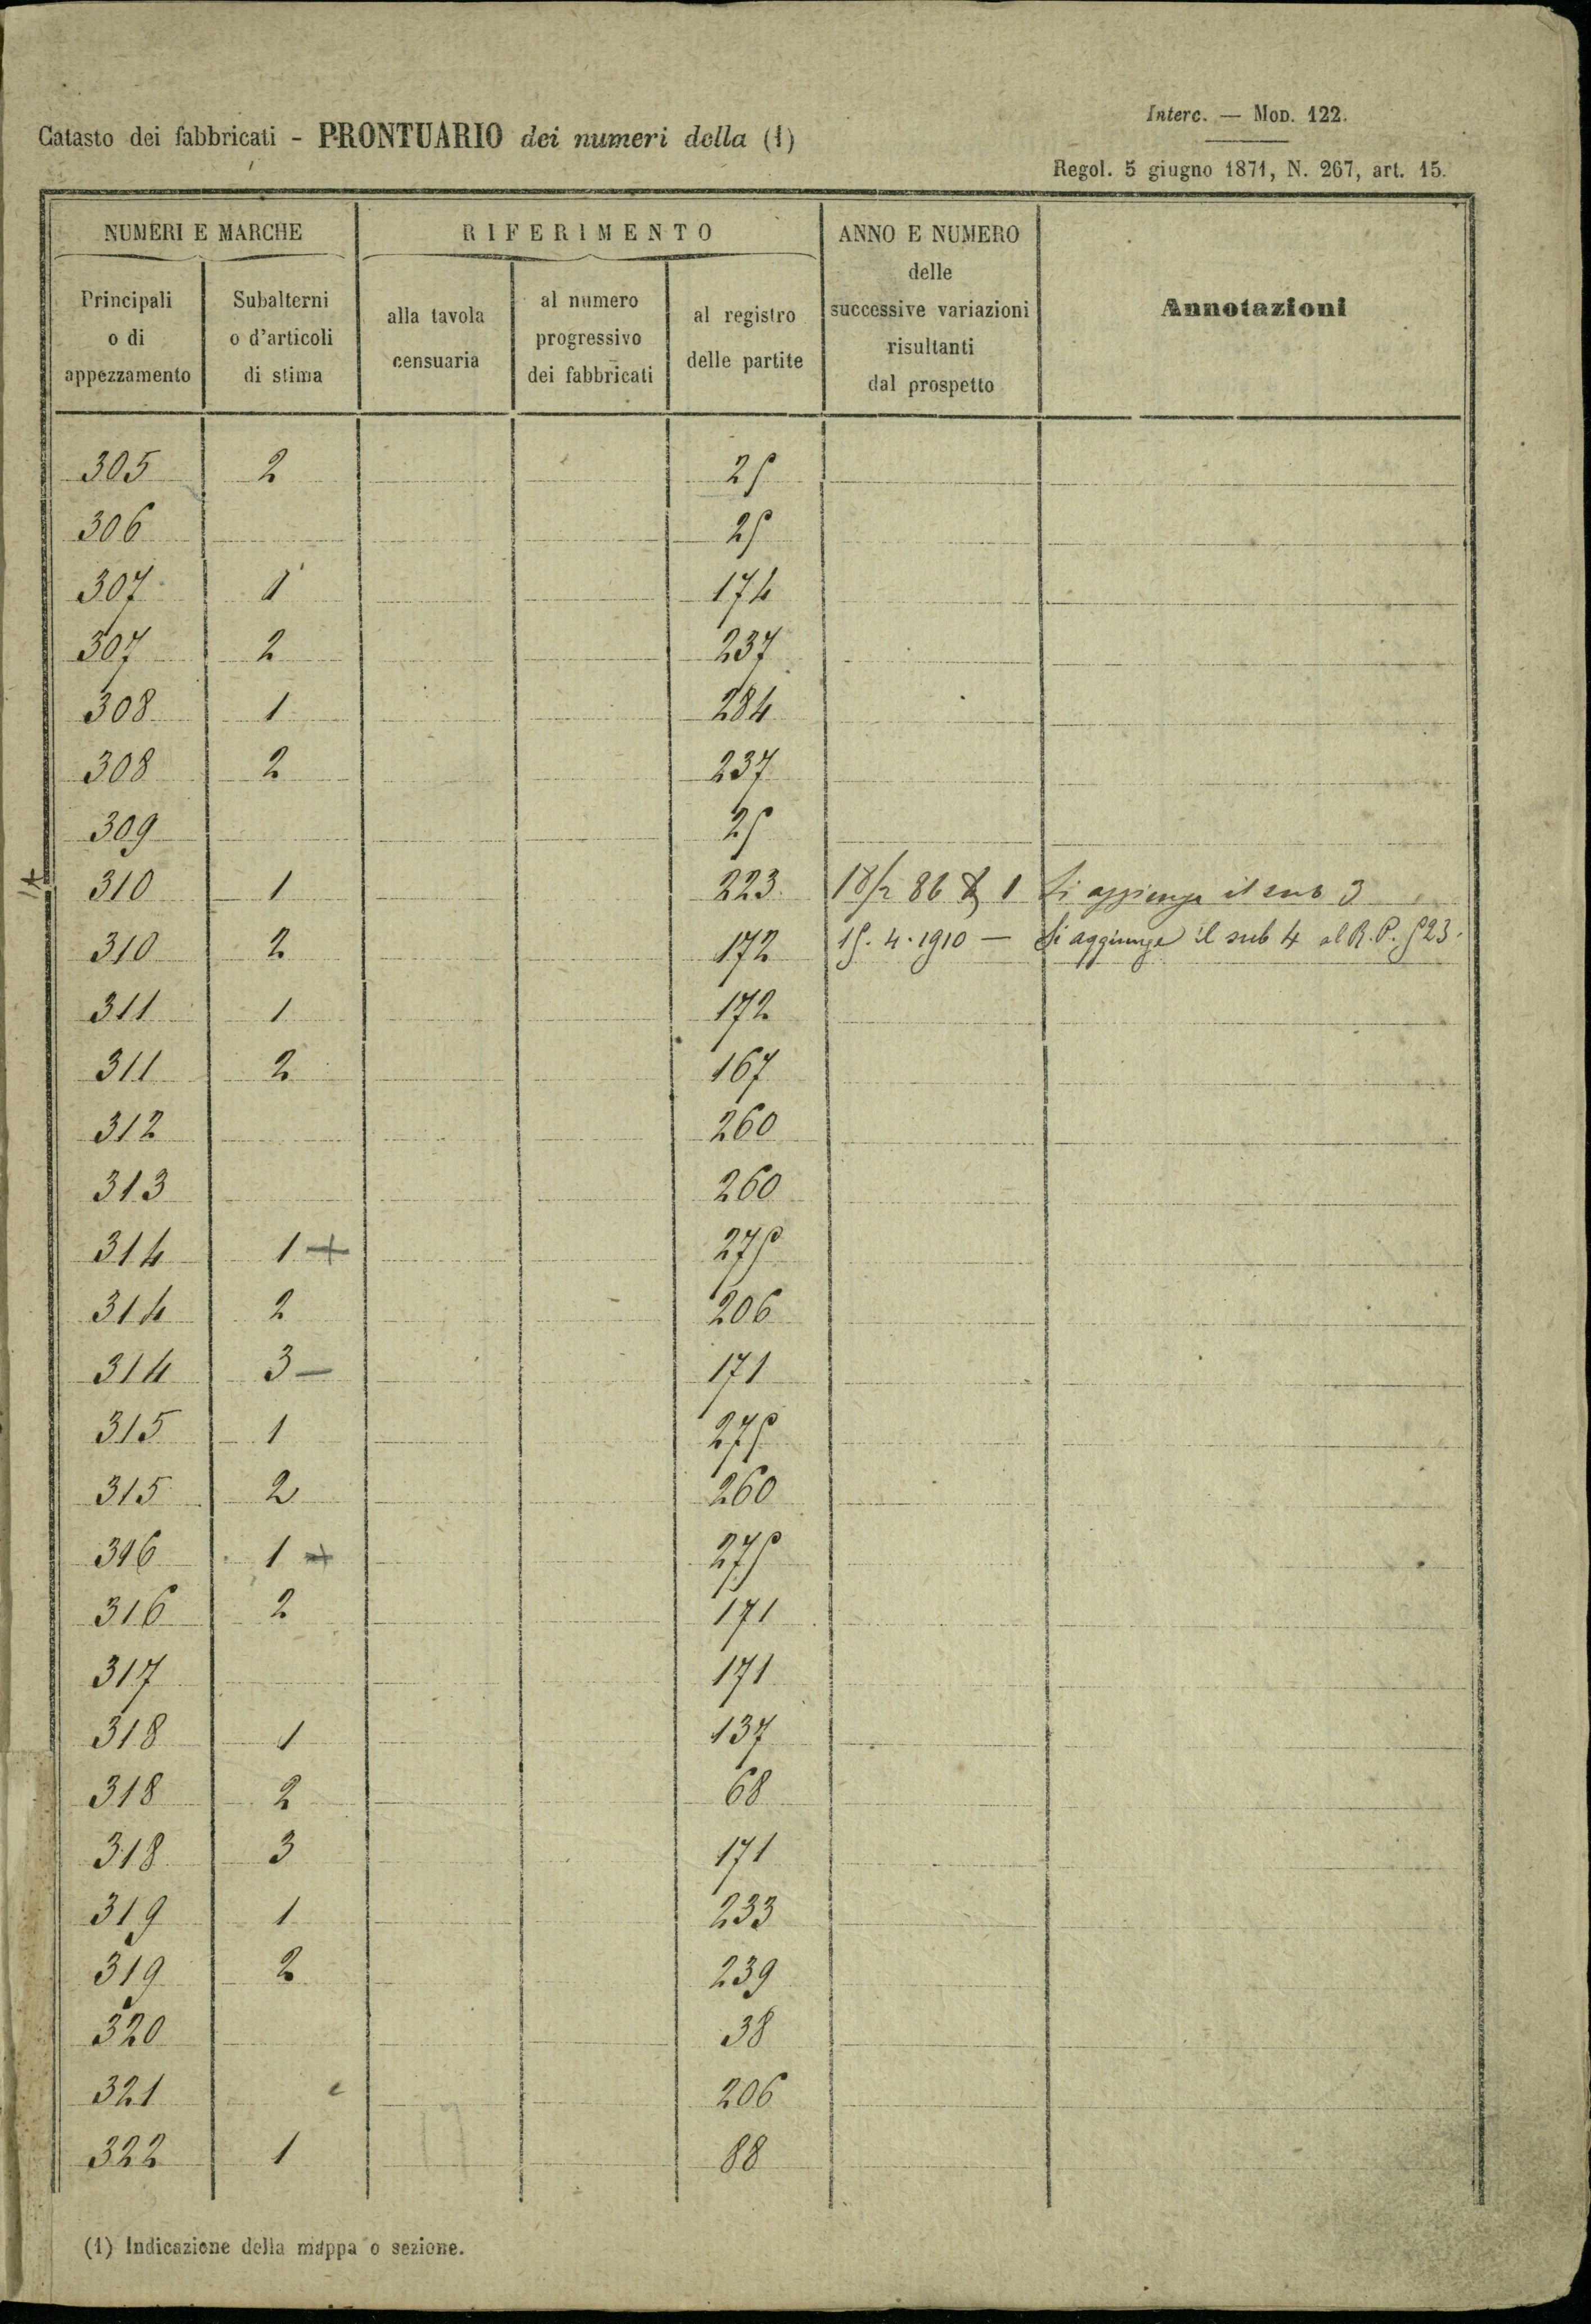 Interc. — Mod. 122.
Catasto dei fabbricati - PRONTUARIO dei numeri della (1)
Regol. 5 giugno 1871, N. 267, art. 15.
NUMERI E MARCHE RIFERIMENTO ANNO E NUMERO delle successive variazioni risultanti dal prospetto Annotazioni
Principali o di appezzamento Subalterni o d'articoli di stima alla tavola censuaria al numero progressivo dei fabbricati al registro delle partite
305 2 25
306 25
307 1 174
307 2 237
308 1 284
308 2 237
309 25
310 1 223 18/2 86 1 Si aggiunge il sub 3
310 2 172 15.4.1910 — Si aggiunge il sub 4 al R.P. 523.
311 1 172
311 2 167
312 260
313 260
314 1 + 275
314 2 206
314 3 — 171
315 1 275
315 2 260
316 1 + 275
316 2 171
317 171
318 1 137
318 2 68
318 3 171
319 1 233
319 2 239
320 38
321 206
322 1 88
(1) Indicazione della mappa o sezione.